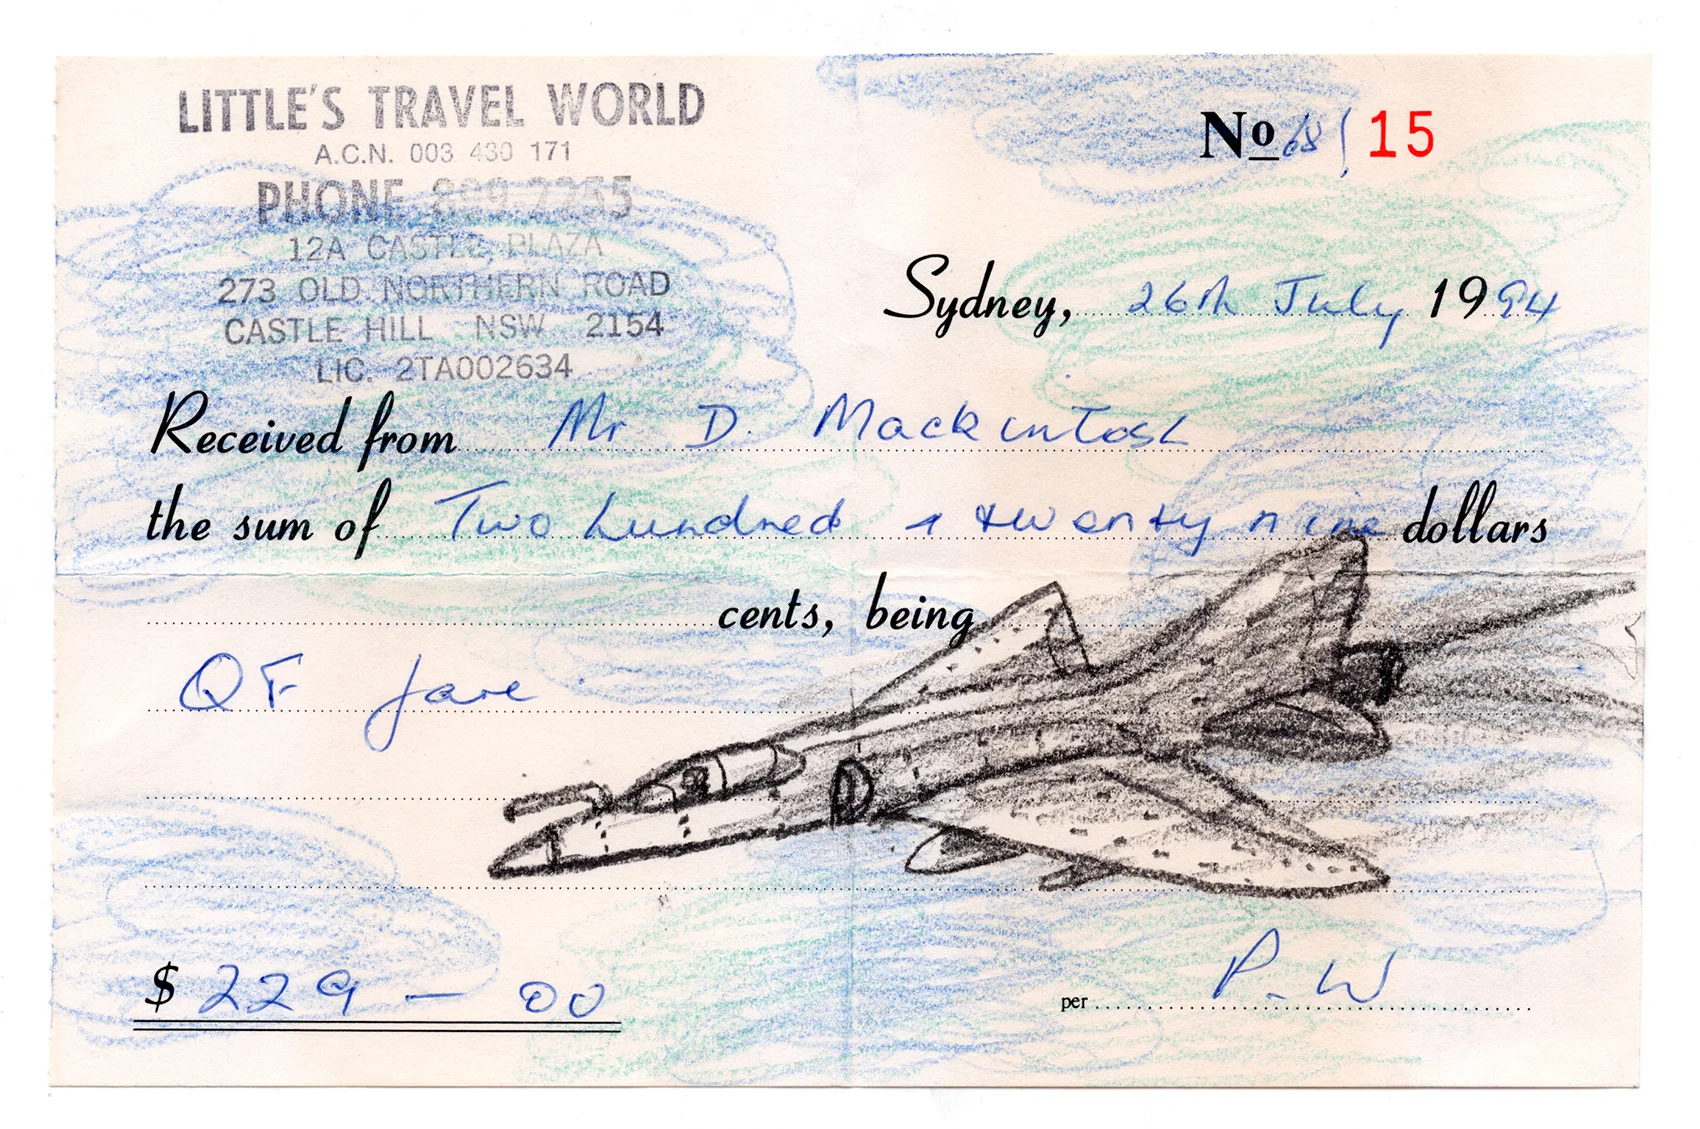 LITTLE'S TRAVEL WORLD
A.C.N. 003 430 171
PHONE 899 7255
12A CASTLE PLAZA
273 OLD NORTHERN ROAD
CASTLE HILL NSW 2154
LIC. 2TA002634
No 68/ 15
Sydney, 26th July 1994
Received from Mr D. Mackintosh
the sum of Two hundred & twenty nine dollars
cents, being
QF fare
$ 229 – 00
per P.W